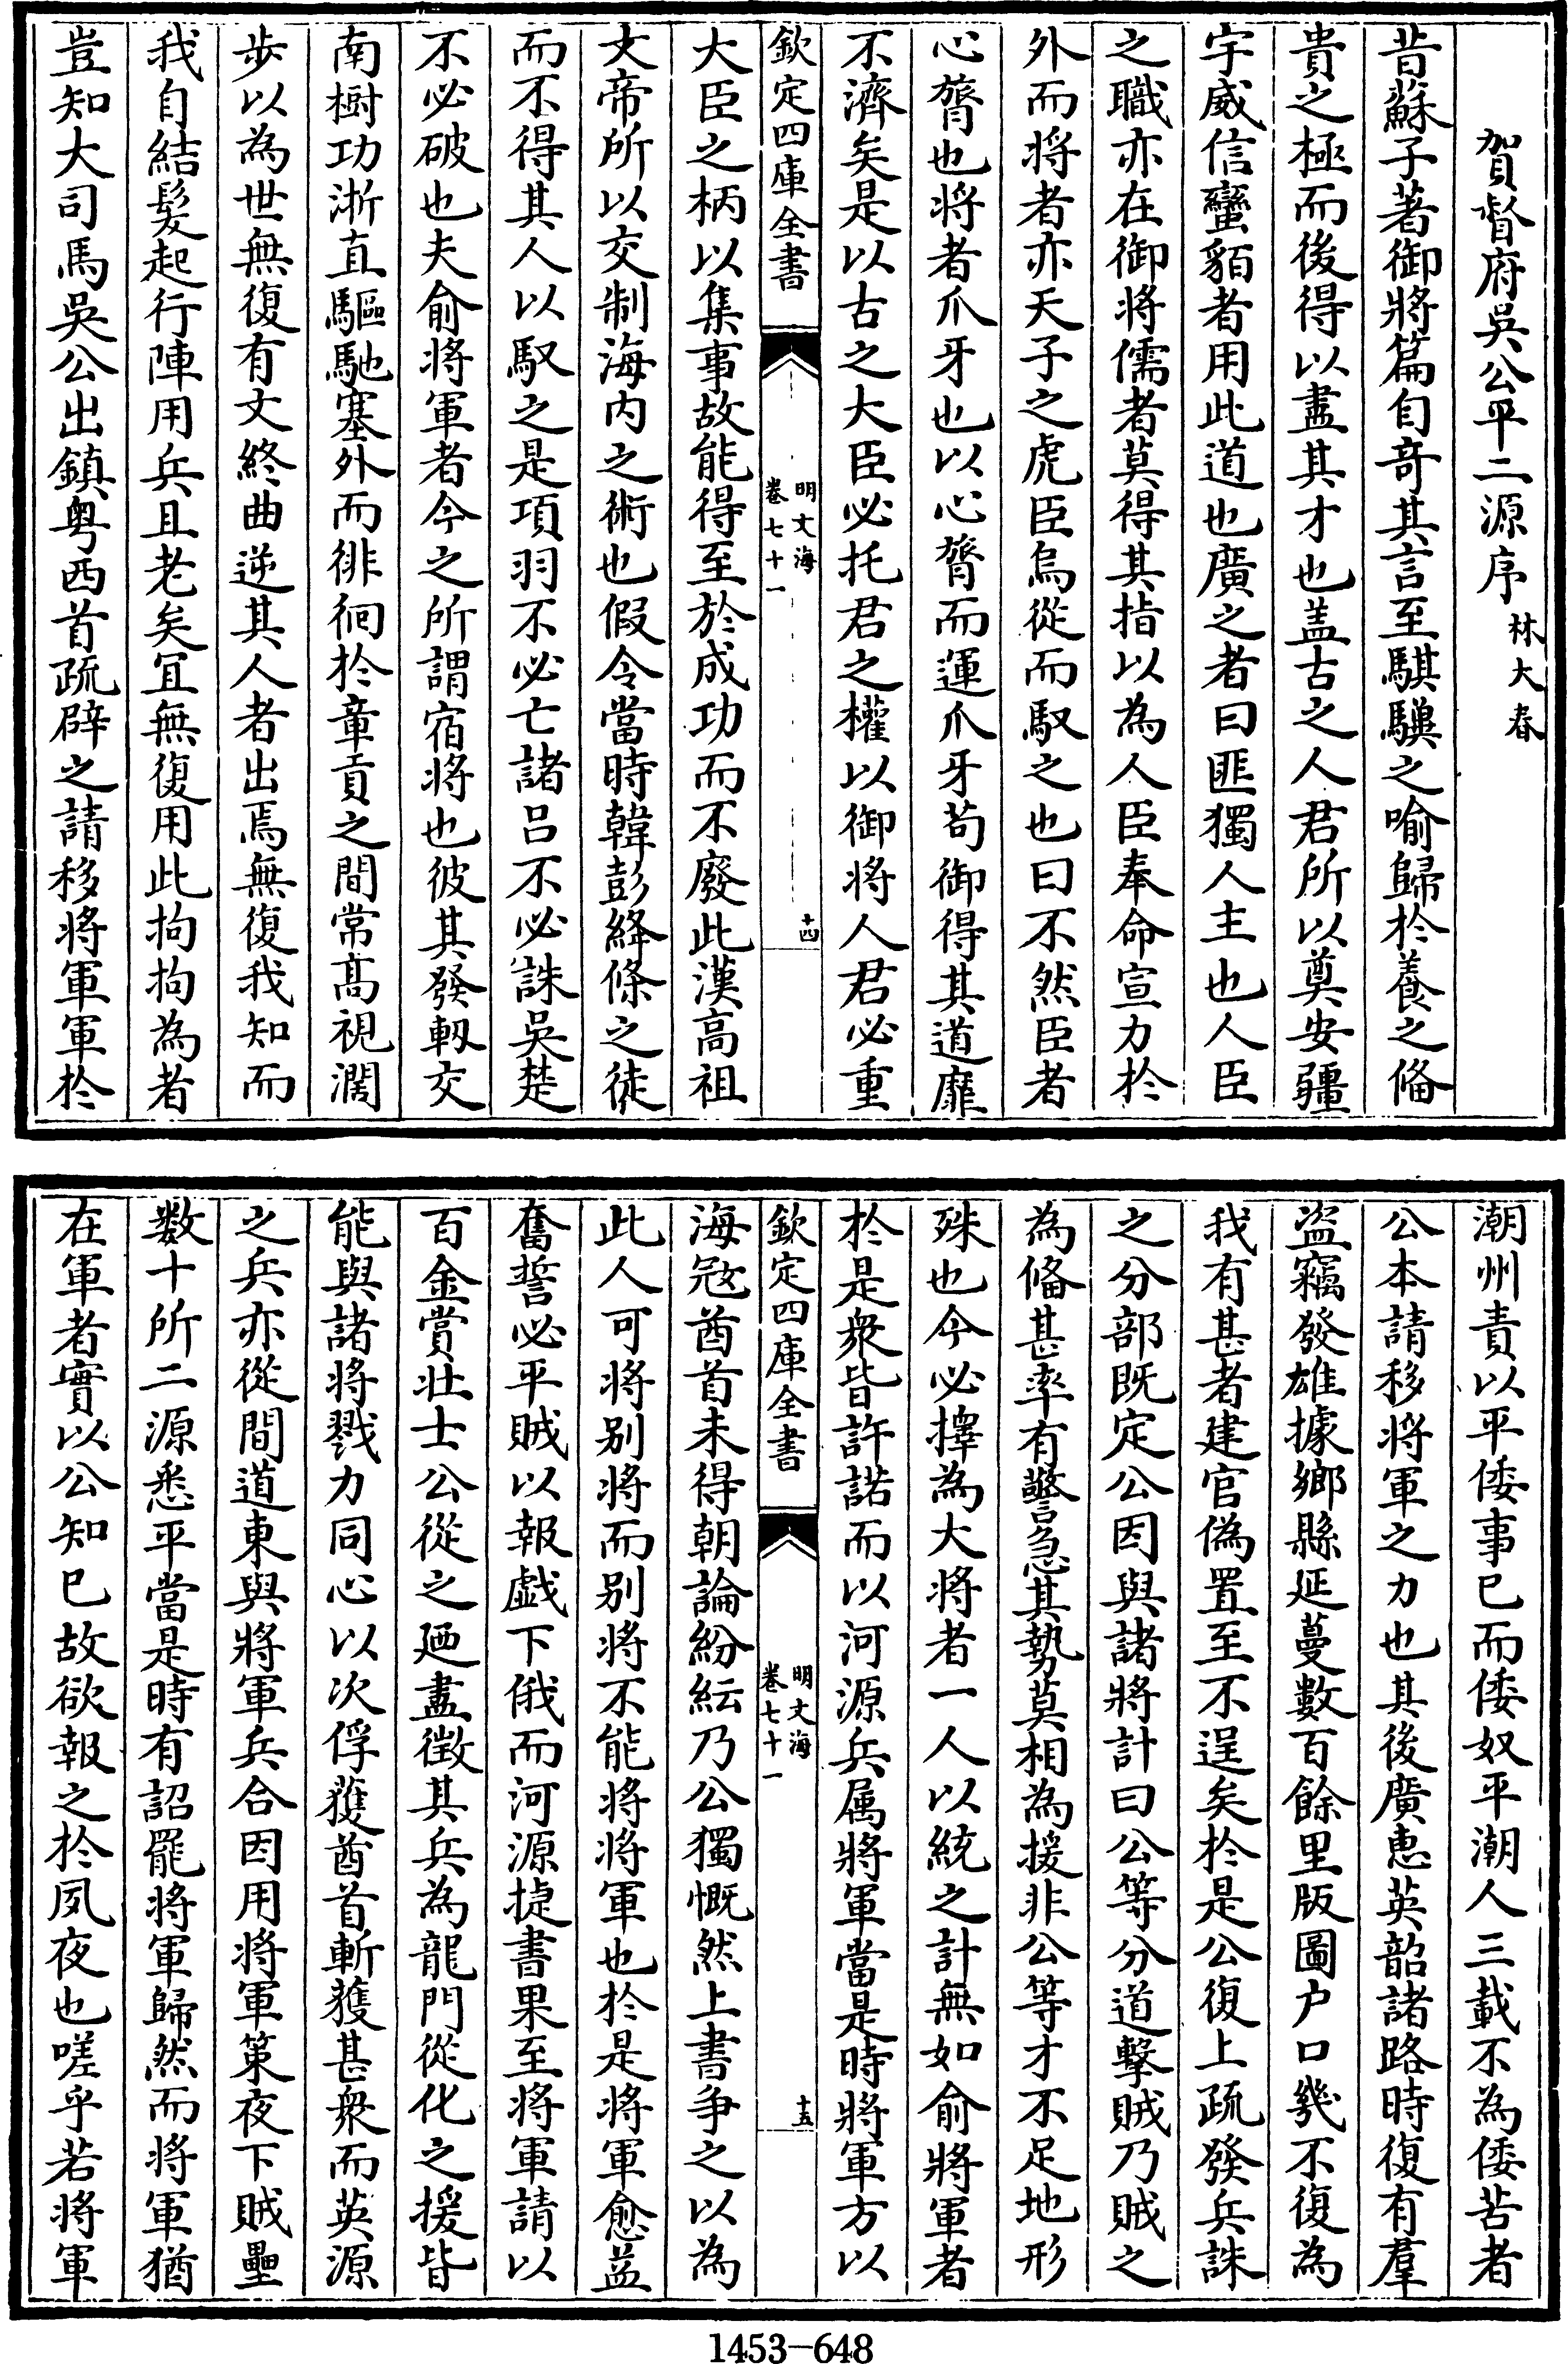 賀督府吳公平二源序 林大春
昔蘇子著御將篇自奇其言至騏驥之喻歸於養之備
貴之極而後得以盡其才也蓋古之人君所以奠安疆
宇威信蠻貊者用此道也廣之者曰匪獨人主也人臣
之職亦在御將儒者莫得其指以為人臣奉命宣力於
外而將者亦天子之虎臣烏從而馭之也曰不然臣者
心膂也將者爪牙也以心膂而運爪牙苟御得其道靡
不濟矣是以古之大臣必托君之權以御將人君必重
欽定四庫全書
明文海
卷七十一
十四
大臣之柄以集事故能得至於成功而不廢此漢高祖
文帝所以交制海内之術也假令當時韓彭絳條之徒
而不得其人以馭之是項羽不必亡諸吕不必誅吳楚
不必破也夫俞將軍者今之所謂宿將也彼其發軔交
南樹功淅直驅馳塞外而徘徊於章貢之間常高視濶
步以為世無復有文終曲逆其人者出焉無復我知而
我自結髮起行陣用兵且老矣宜無復用此拘拘為者
豈知大司馬吳公出鎮粤西首疏辟之請移將軍軍於
潮州責以平倭事已而倭奴平潮人三載不為倭苦者
公本請移將軍之力也其後廣惠英韶諸路時復有羣
盜竊發雄據鄉縣延蔓數百餘里版圖户口幾不復為
我有甚者建官偽置至不逞矣於是公復上疏發兵誅
之分部既定公因與諸將計曰公等分道擊賊乃賊之
為備甚率有警急其勢莫相為援非公等才不足地形
殊也今必擇為大將者一人以統之計無如俞將軍者
於是衆皆許諾而以河源兵属將軍當是時將軍方以
欽定四庫全書
明文海
卷七十一
十五
海冦酋首未得朝論紛紜乃公獨慨然上書争之以為
此人可將别將而别將不能將將軍也於是將軍愈益
奮誓必平賊以報戲下俄而河源捷書果至將軍請以
百金賞壯士公從之廼盡徵其兵為龍門從化之援皆
能與諸將戮力同心以次俘獲酋首斬獲甚衆而英源
之兵亦從間道東與將軍兵合因用將軍策夜下賊壘
数十所二源悉平當是時有詔罷將軍歸然而將軍猶
在軍者實以公知已故欲報之於夙夜也嗟乎若將軍
1453-648